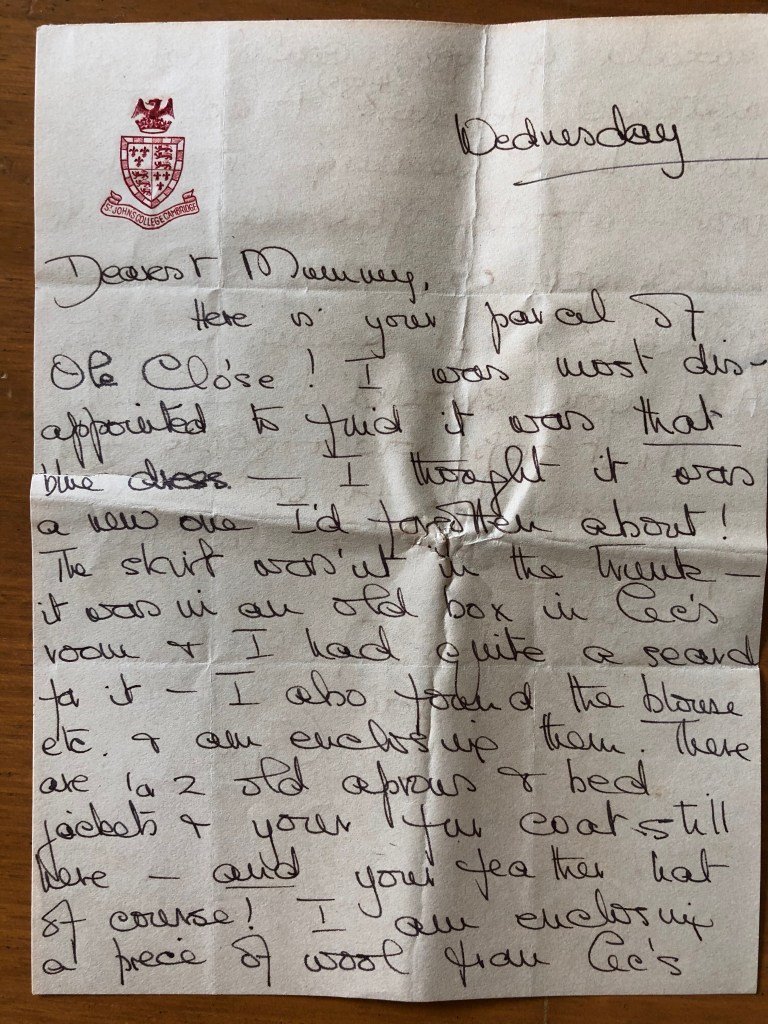 ST JOHNS COLLEGE CAMBRIDGE
Wednesday
Dearest Mummy,
Here is your parcel of
Ole Close! I was most dis-
appointed to find it was that
blue dress — I thought it was
a new one I'd forgotten about!
The skirt was'nt in the trunk —
it was in an old box in Cec's
room & I had quite a search
for it — I also found the blouse
etc. & am enclosing them. There
are 2 old aprons & bed
jackets & your fur coat still
here — and your feather hat
of course! I am enclosing
a piece of wool from Cec's